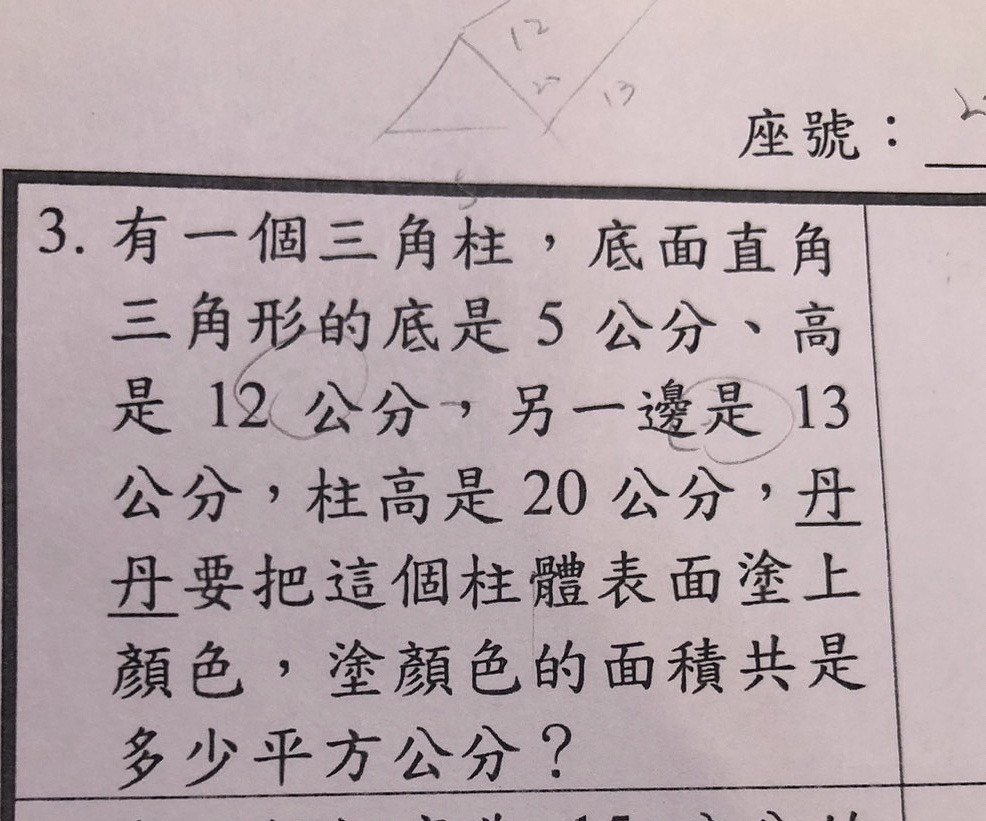 12
20
13
座號：
5
3. 有一個三角柱，底面直角
三角形的底是 5 公分、高
是 12 公分，另一邊是 13
公分，柱高是 20 公分，丹
丹要把這個柱體表面塗上
顏色，塗顏色的面積共是
多少平方公分？